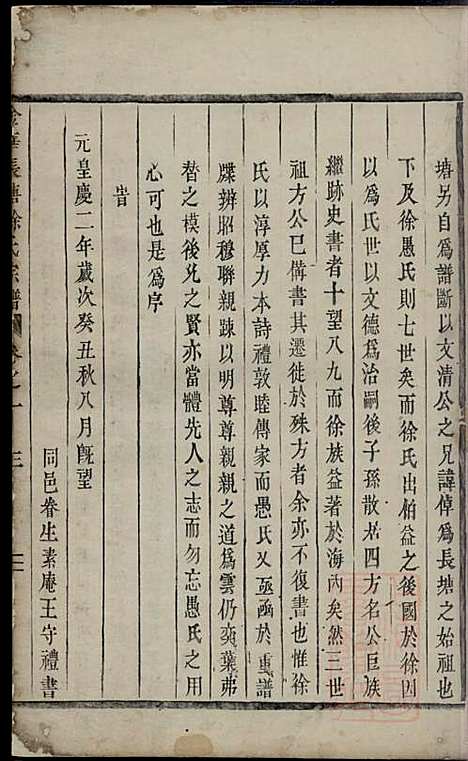 塘另自爲譜斷以文清公之兄諱倬爲長塘之始祖也
下及徐愚氏則七世矣而徐氏出伯益之後國於徐因
以爲氏世以文德爲治嗣後子孫散居四方名公巨族
繼跡史書者十望八九而徐族益著於海內矣然三世
祖方公已備書其遷徙於殊方者余亦不復書也惟徐
氏以淳厚力本詩禮敦睦傳家而愚氏又亟亟於重譜
牒辨昭穆聯親踈以明尊尊親親之道爲雲仍奕葉弗
替之模後兄之賢亦當體先人之志而勿忘愚氏之用
心可也是爲序
旹
元皇慶二年歲次癸丑秋八月旣望
同邑眷生素庵王守禮書
金華長塘徐氏宗譜 卷之一 三